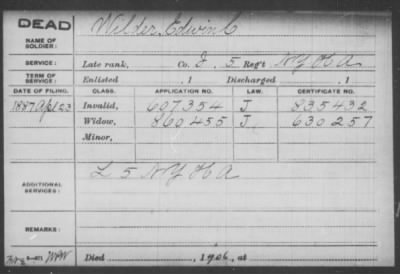 DEAD
NAME OF SOLDIER: Wilder, Edwin C
SERVICE: Late rank, Co. I, 5 Reg't N Y H A
TERM OF SERVICE: Enlisted , 1 Discharged , 1
DATE OF FILING. CLASS. APPLICATION NO. LAW. CERTIFICATE NO.
1887 Apl 23 Invalid, 607.354 J 835432
Widow, 860455 J 630257
Minor,
ADDITIONAL SERVICES: L 5 N Y H A
REMARKS:
Died , 1906, at